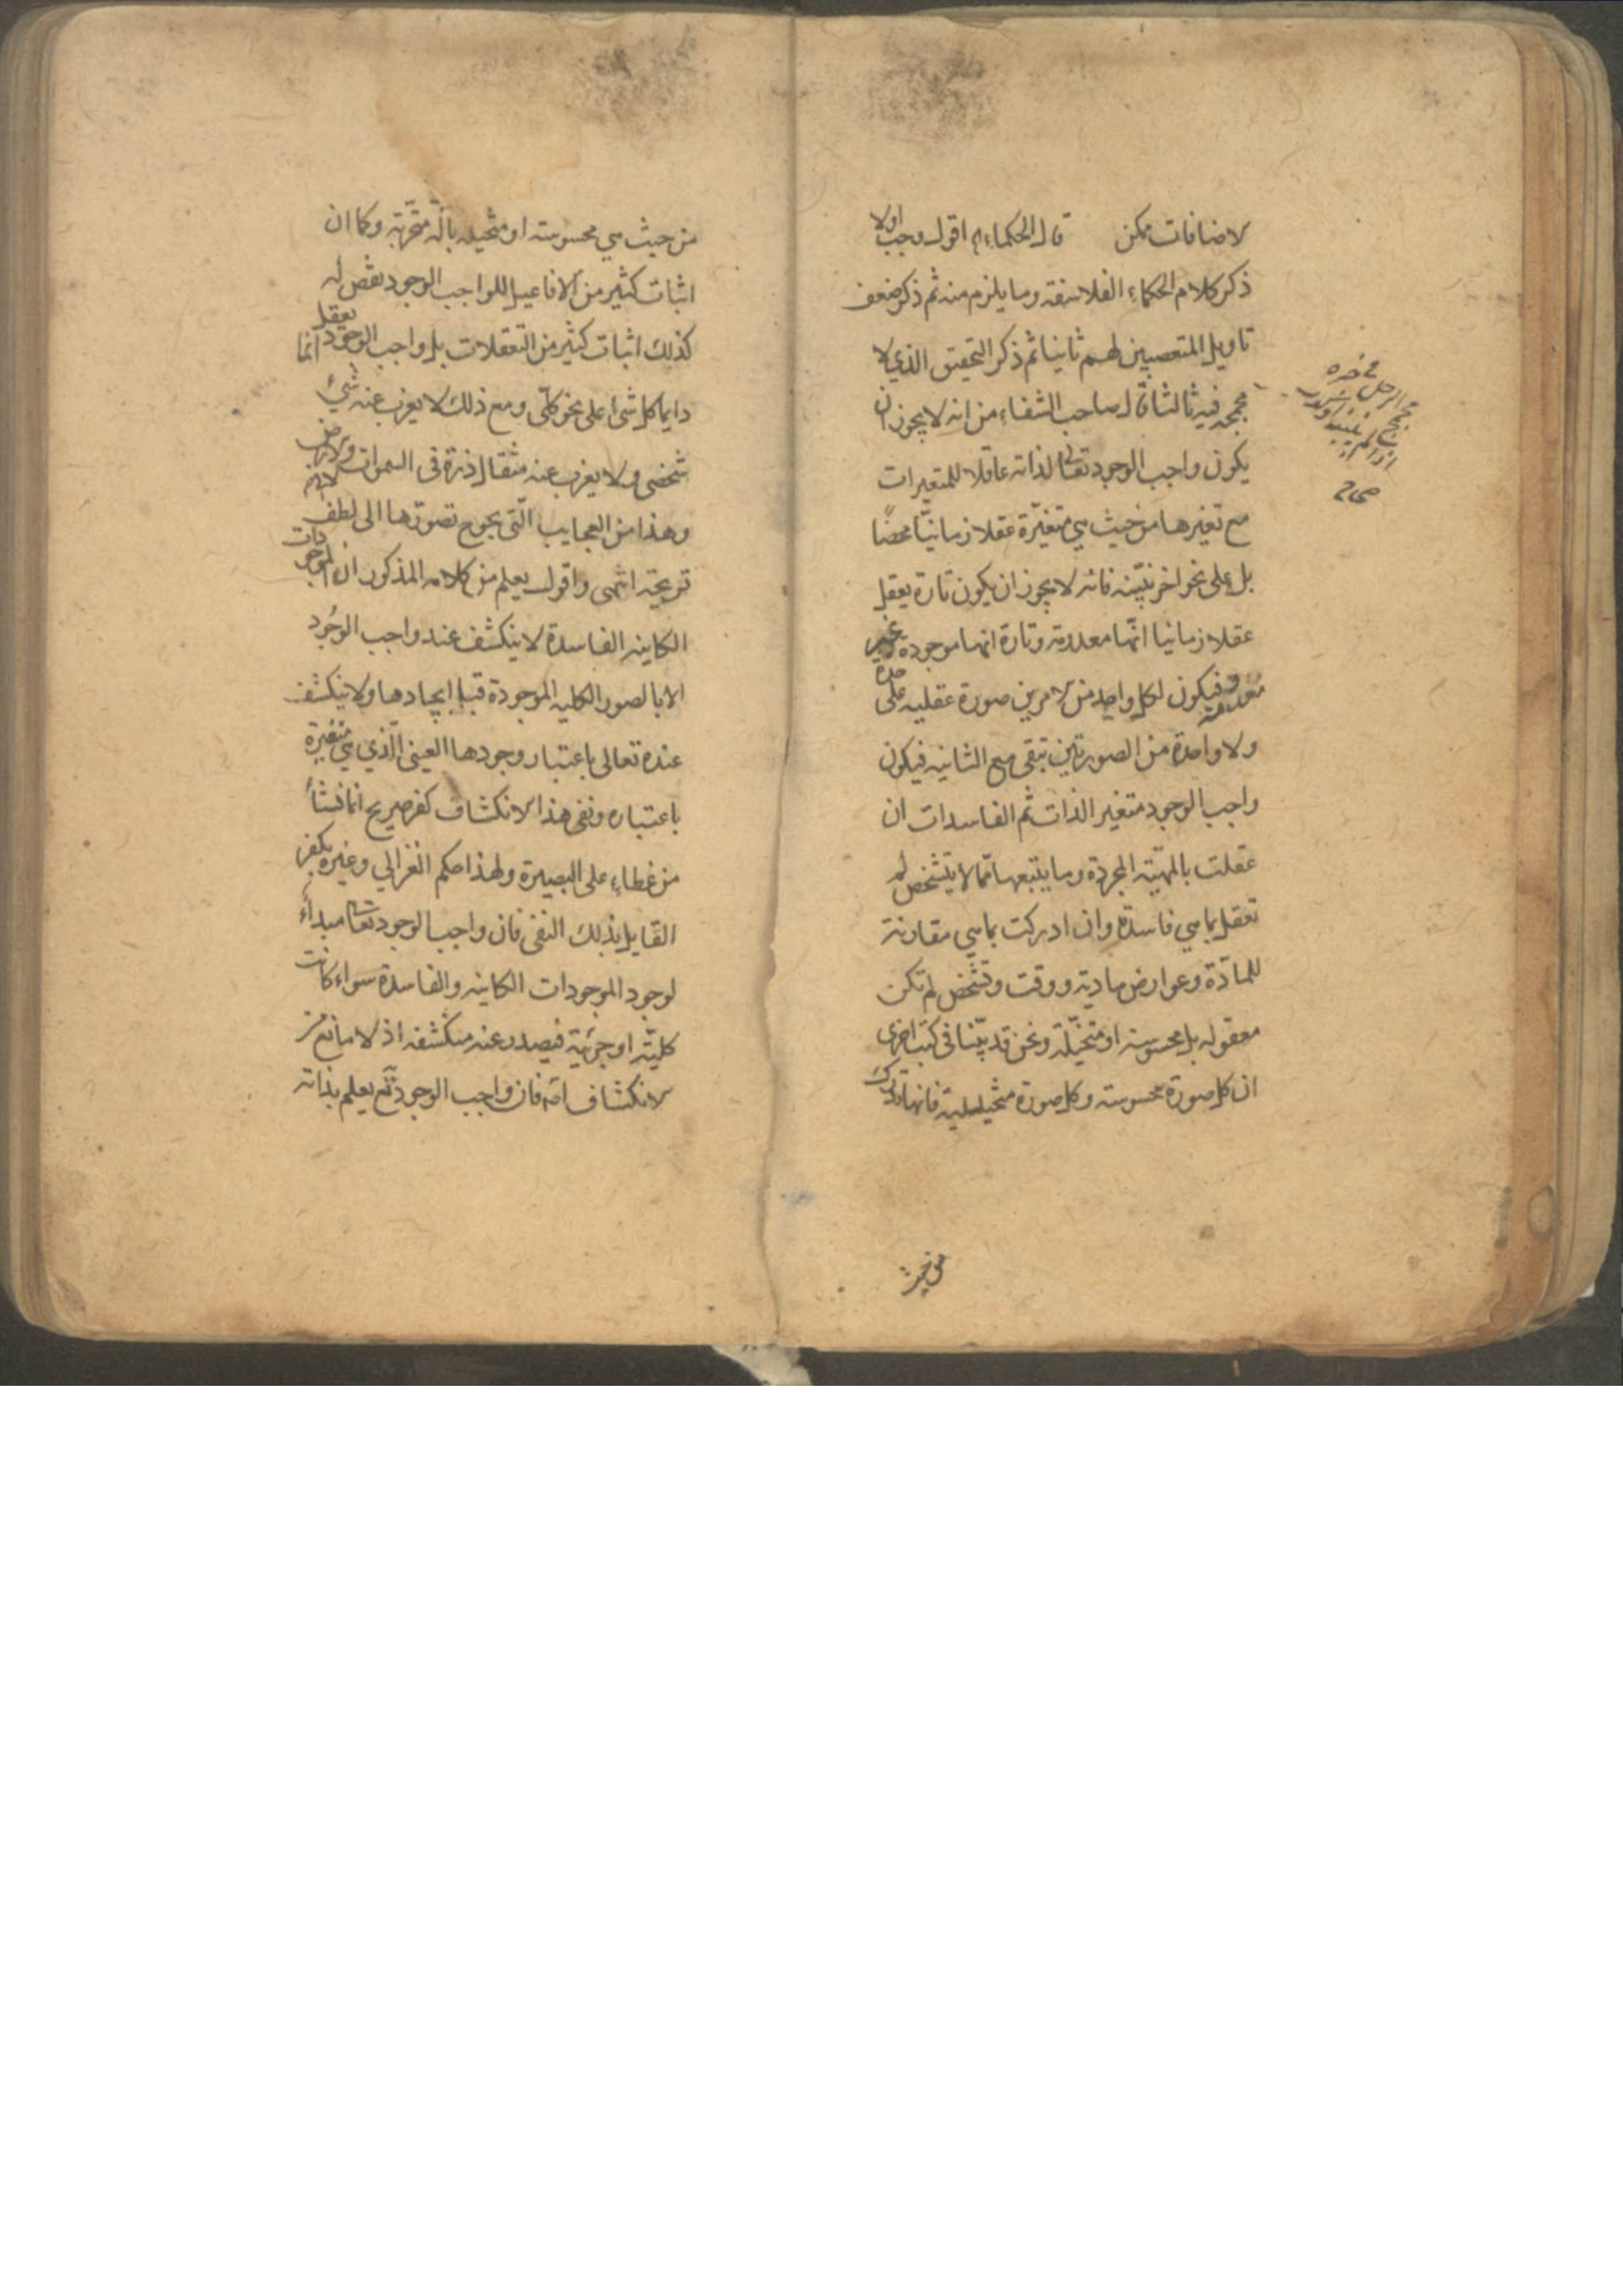 لاضافات ممكن قال الحكماء اقول وجب اولا
ذكر كلام الحكماء الفلاسفة وما يلزم منه ثم ذكر ضعف
تاويل المتعصبين لهم ثانيا ثم ذكر التحقيق الذي لا
مجمجه فيه ثالثا قال صاحب الشفاء من انه لا يجوز ان
يكون واجب الوجود تعالى لذاته عاقلا للمتغيرات
مع تغيرها من حيث هي متغيّرة عقلا زمانيّا محضًا
بل على نحو اخر نبيّنه فانه لا يجوز ان يكون تارة يعقل
عقلا زمانيا انّها معدومة وتارة انها موجودة غير
معدومة فيكون لكل واحد من الامرين صورة عقليه على حدة
ولا واحدة من الصورتين تبقى مع الثانيه فيكون
واجب الوجود متغير الذات ثم الفاسدات ان
عقلت بالمهيّة المجردة وما يتبعها ممّا لا يتشخص لم
تعقل بما هي فاسدة وان ادركت بما هي مقارنة
للمادّة وعوارض مادية ووقت وتشخص لم تكن
معقوله بل محسوسة او متخيّلة ونحن قد بيّنا في كتب اخرى
ان كل صورة محسوسة وكل صورة متخيليلية فانها تدرك
من حيث
الرجل في خبره
صحاح
من حيث هي محسوسته او متخيله بالّة متجزية وكما ان
اثبات كثير من الافاعيل للواجب الوجود نقص له
كذلك اثبات كثير من التعقلات بل واجب الوجود يعقل انما
دايما كل شىء على نحو كلّى ومع ذلك لا يعزب عنه شيئ
شخصى ولا يعزب عنه مثقال ذرة فى السموات ولا فى الارض
وهذا من العجايب الّتى يحوج تصوّرها الى لطف
قريحة انتهى واقول يعلم من كلامه المذكور ان الموجودات
الكاينه الفاسدة لا ينكشف عند واجب الوجُود
الا بالصور الكليه الموجودة قبل ايجادها ولا ينكشف
عنده تعالى باعتبار وجودها العينى الّذي هي متغيّرة
باعتباره ونفى هذا الانكشاف كفر صريح انما نشأ
من غطاء على البصيرة ولهذا حكم الغزالي وغيره بكفر
القايل بذلك النفى فان واجب الوجود تعالى مبدأء
لوجود الموجودات الكاينه والفاسدة سواء كانت
كليّة او جزئية فيصدر عنه منكشفه اذ لا مانع من
لانكشاف امّه فان واجب الوجود تع يعلم بذاته